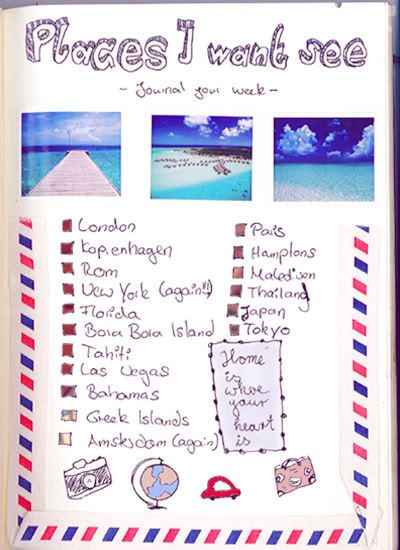 Places I want see
- Journal your week -
London
Kopenhagen
Rom
New York (again!!)
Florida
Bora Bora Island
Tahiti
Las Vegas
Bahamas
Greek Islands
Amsterdam (again)
Paris
Hamptons
Malediven
Thailand
Japan
Tokyo
Home
is
where
your
heart
is